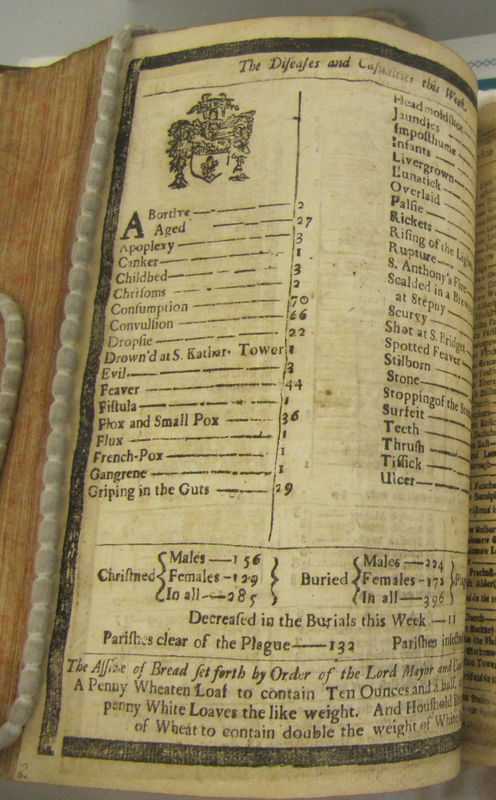 The Diſeaſes and Caſualties this Week.
Abortive 2
Aged 27
Apoplexy 3
Canker 1
Childbed 3
Chriſoms 2
Conſumption 70
Convulſion 66
Dropſie 22
Drown'd at S. Kathar. Tower 1
Evil 3
Feaver 44
Fiſtula 1
Flox and Small Pox 36
Flux 1
French-Pox 1
Gangrene 1
Griping in the Guts 29
Headmoldſhot
Jaundies
Impoſthume
Infants
Livergrown
Lunatick
Overlaid
Palſie
Rickets
Riſing of the
Rupture
S. Anthony's Fire
Scalded in a
at Stepny
Scurvy
Shot at S. Bridget
Spotted Feaver
Stilborn
Stone
Stopping of the
Surfeit
Teeth
Thruſh
Tiſſick
Ulcer
Chriſtned { Males — 156 Females - 129 In all — 285 }
Buried { Males — 224 Females - 172 In all — 396 }
Decreaſed in the Burials this Week — 11
Pariſhes clear of the Plague — 132 Pariſhes
The Aſſize of Bread ſet forth by Order of the Lord Mayor and
A Penny Wheaten Loaf to contain Ten Ounces and a half,
penny White Loaves the like weight. And Houſhold
of Wheat to contain double the weight of White